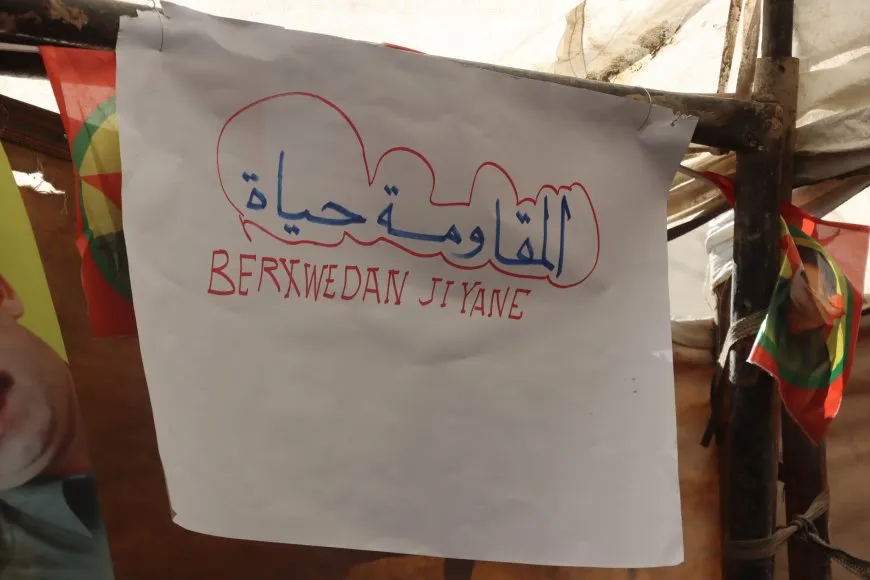 المقاومة حياة
BERXWEDAN JIYANE